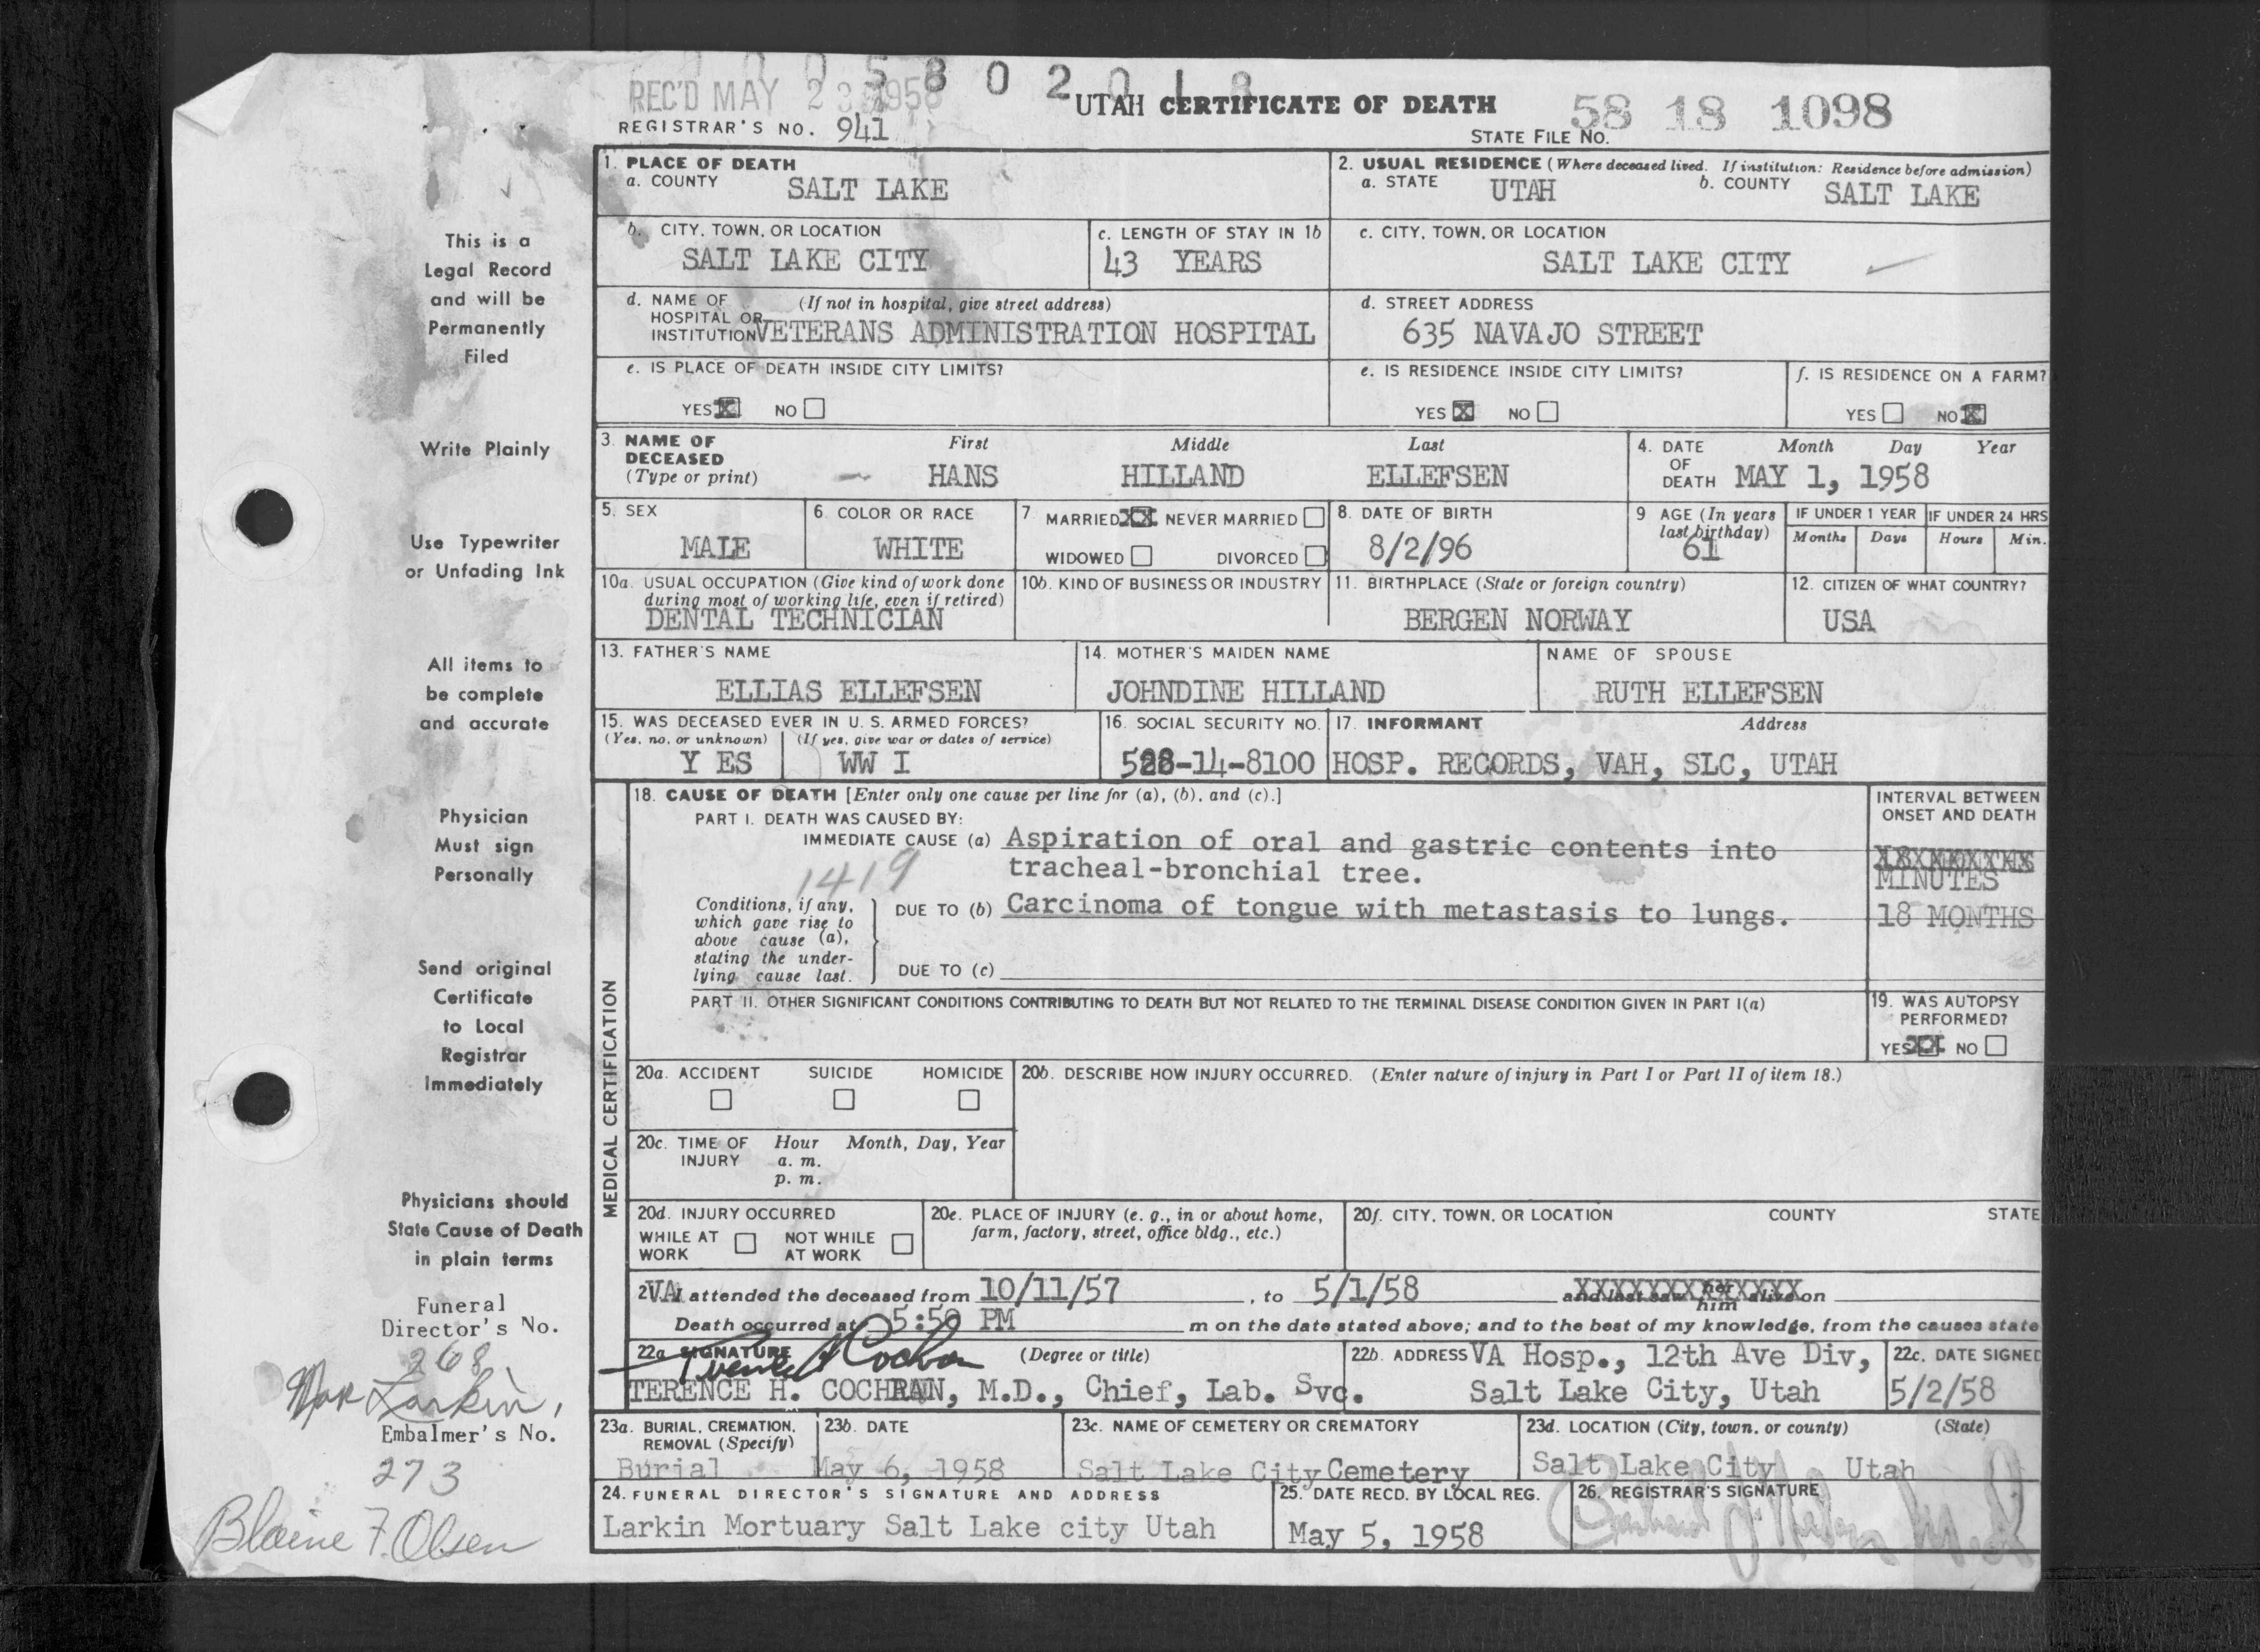 REC'D MAY 23 1958
UTAH CERTIFICATE OF DEATH
58 18 1098
REGISTRAR'S NO. 941
STATE FILE NO.
1. PLACE OF DEATH
a. COUNTY SALT LAKE
2. USUAL RESIDENCE (Where deceased lived. If institution: Residence before admission)
a. STATE UTAH b. COUNTY SALT LAKE
b. CITY, TOWN, OR LOCATION
SALT LAKE CITY
c. LENGTH OF STAY IN 1b
43 YEARS
c. CITY, TOWN, OR LOCATION
SALT LAKE CITY
d. NAME OF (If not in hospital, give street address)
HOSPITAL OR
INSTITUTION VETERANS ADMINISTRATION HOSPITAL
d. STREET ADDRESS
635 NAVAJO STREET
e. IS PLACE OF DEATH INSIDE CITY LIMITS?
YES X NO
e. IS RESIDENCE INSIDE CITY LIMITS?
YES X NO
f. IS RESIDENCE ON A FARM?
YES NO X
3. NAME OF DECEASED (Type or print)
First Middle Last
HANS HILLAND ELLEFSEN
4. DATE OF DEATH Month Day Year
MAY 1, 1958
5. SEX
MALE
6. COLOR OR RACE
WHITE
7. MARRIED XX NEVER MARRIED
WIDOWED DIVORCED
8. DATE OF BIRTH
8/2/96
9 AGE (In years last birthday)
61
IF UNDER 1 YEAR
Months Days
IF UNDER 24 HRS
Hours Min.
10a. USUAL OCCUPATION (Give kind of work done
during most of working life, even if retired)
DENTAL TECHNICIAN
10b. KIND OF BUSINESS OR INDUSTRY
11. BIRTHPLACE (State or foreign country)
BERGEN NORWAY
12. CITIZEN OF WHAT COUNTRY?
USA
13. FATHER'S NAME
ELLIAS ELLEFSEN
14. MOTHER'S MAIDEN NAME
JOHNDINE HILLAND
NAME OF SPOUSE
RUTH ELLEFSEN
15. WAS DECEASED EVER IN U. S. ARMED FORCES?
(Yes, no, or unknown) (If yes, give war or dates of service)
Y ES WW I
16. SOCIAL SECURITY NO.
528-14-8100
17. INFORMANT Address
HOSP. RECORDS, VAH, SLC, UTAH
MEDICAL CERTIFICATION
18. CAUSE OF DEATH [Enter only one cause per line for (a), (b), and (c).]
INTERVAL BETWEEN
ONSET AND DEATH
PART I. DEATH WAS CAUSED BY:
IMMEDIATE CAUSE (a) Aspiration of oral and gastric contents into
tracheal-bronchial tree.
MINUTES
1419
Conditions, if any,
which gave rise to
above cause (a),
stating the under-
lying cause last.
DUE TO (b) Carcinoma of tongue with metastasis to lungs.
18 MONTHS
DUE TO (c)
PART II. OTHER SIGNIFICANT CONDITIONS CONTRIBUTING TO DEATH BUT NOT RELATED TO THE TERMINAL DISEASE CONDITION GIVEN IN PART I(a)
19. WAS AUTOPSY
PERFORMED?
YES XX NO
20a. ACCIDENT SUICIDE HOMICIDE
20b. DESCRIBE HOW INJURY OCCURRED. (Enter nature of injury in Part I or Part II of item 18.)
20c. TIME OF INJURY Hour Month, Day, Year
a. m.
p. m.
20d. INJURY OCCURRED
WHILE AT WORK NOT WHILE AT WORK
20e. PLACE OF INJURY (e. g., in or about home,
farm, factory, street, office bldg., etc.)
20f. CITY, TOWN, OR LOCATION COUNTY STATE
2 VA attended the deceased from 10/11/57, to 5/1/58 XXXXXXXXXXXXX him on
Death occurred at 5:50 PM m on the date stated above; and to the best of my knowledge, from the causes state
22a SIGNATURE (Degree or title)
Terence H Cochran
TERENCE H. COCHRAN, M.D., Chief, Lab. Svc.
22b. ADDRESS VA Hosp., 12th Ave Div,
Salt Lake City, Utah
22c. DATE SIGNED
5/2/58
23a. BURIAL, CREMATION,
REMOVAL (Specify)
Burial
23b. DATE
May 6, 1958
23c. NAME OF CEMETERY OR CREMATORY
Salt Lake City Cemetery
23d. LOCATION (City, town, or county) (State)
Salt Lake City Utah
24. FUNERAL DIRECTOR'S SIGNATURE AND ADDRESS
Larkin Mortuary Salt Lake city Utah
25. DATE RECD. BY LOCAL REG.
May 5, 1958
26. REGISTRAR'S SIGNATURE
This is a
Legal Record
and will be
Permanently
Filed
Write Plainly
Use Typewriter
or Unfading Ink
All items to
be complete
and accurate
Physician
Must sign
Personally
Send original
Certificate
to Local
Registrar
Immediately
Physicians should
State Cause of Death
in plain terms
Funeral
Director's No.
268
Larkin,
Embalmer's No.
273
Blaine F. Olsen